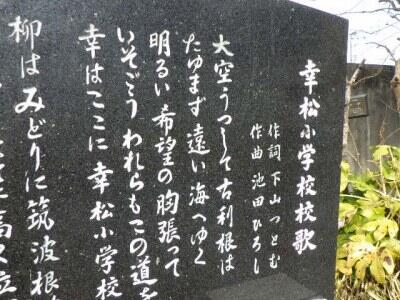 幸松小学校校歌
作詞 下山つとむ
作曲 池田ひろし
大空うつして古利根は
たゆまず遠い海へゆく
明るい希望の胸張って
いそごうわれらもこの道を
幸はここに幸松小学校
柳はみどりに筑波根